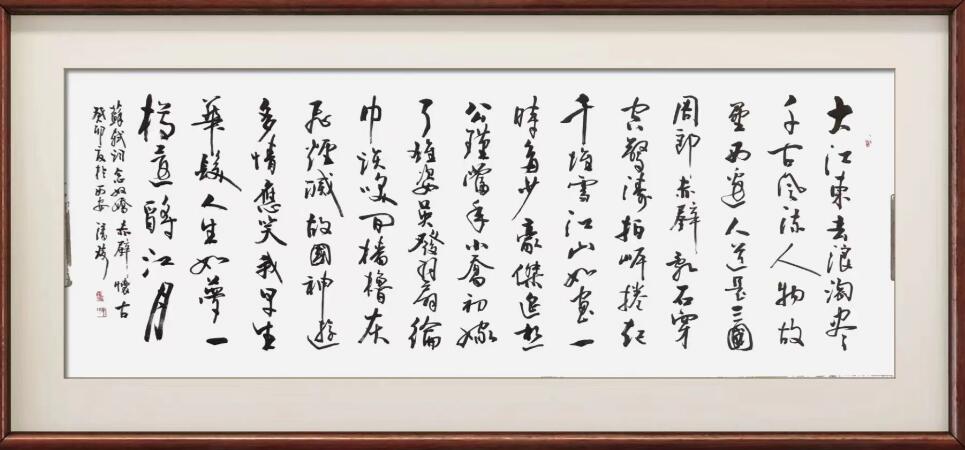 大江東去浪淘尽
千古風流人物故
壘西邊人道是三國
周郎赤壁亂石穿
空驚濤拍岸捲起
千堆雪江山如畫一
時多少豪傑遥想
公瑾當年小喬初嫁
了雄姿英發羽扇綸
巾談笑間檣櫓灰
飛煙滅故國神遊
多情應笑我早生
華髮人生如夢一
樽還酹江月
蘇軾詞念奴嬌赤壁懷古
癸卯夏於西安